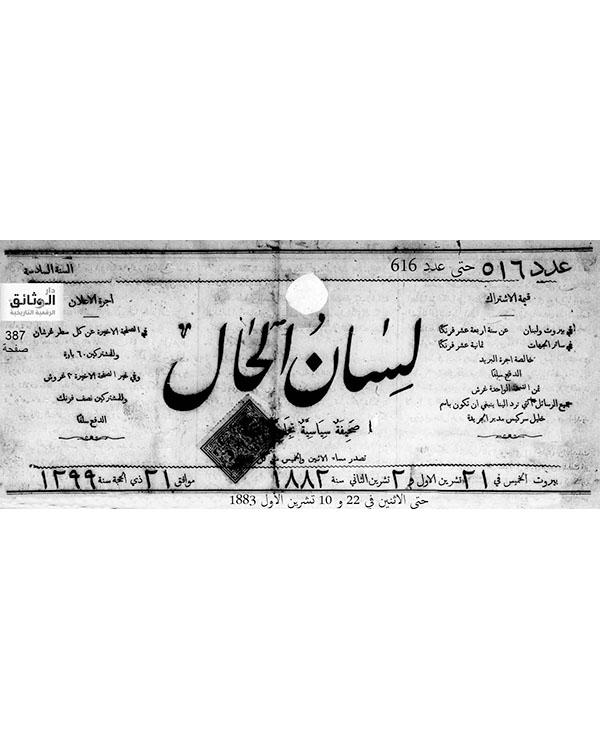 عدد ٥١٦ حتى عدد 616
السنة السادسة
دار
الوثائق
الرقمية التاريخية
387
صفحة
قيمة الاشتراك
في بيروت ولبنان عن سنة اربعة عشر فرنكًا
في سائر الجهات ثمانية عشر فرنكًا
خالصة اجرة البريد
الدفع سلفًا
ثمن الواحدة غرش
جميع الرسائل التي ترد الينا ينبغي ان تكون باسم
خليل سركيس مدير الجريدة
لسان الحال
صحيفة سياسية
تصدر مساء الاثنين والخميس من كل
اجرة الاعلان
في الصفحة الاخيرة عن كل سطر غرشان
وللمشتركين ٦٠ بارة
وفي غير الصفحة الاخيرة ٣ غروش
وللمشتركين نصف فرنك
الدفع سلفًا
بيروت الخميس في ٢١ تشرين الاول و ٢ تشرين الثاني سنة ١٨٨٢ موافق ٢١ ذي الحجة سنة ١٢٩٩
حتى الاثنين في 22 و 10 تشرين الأول 1883